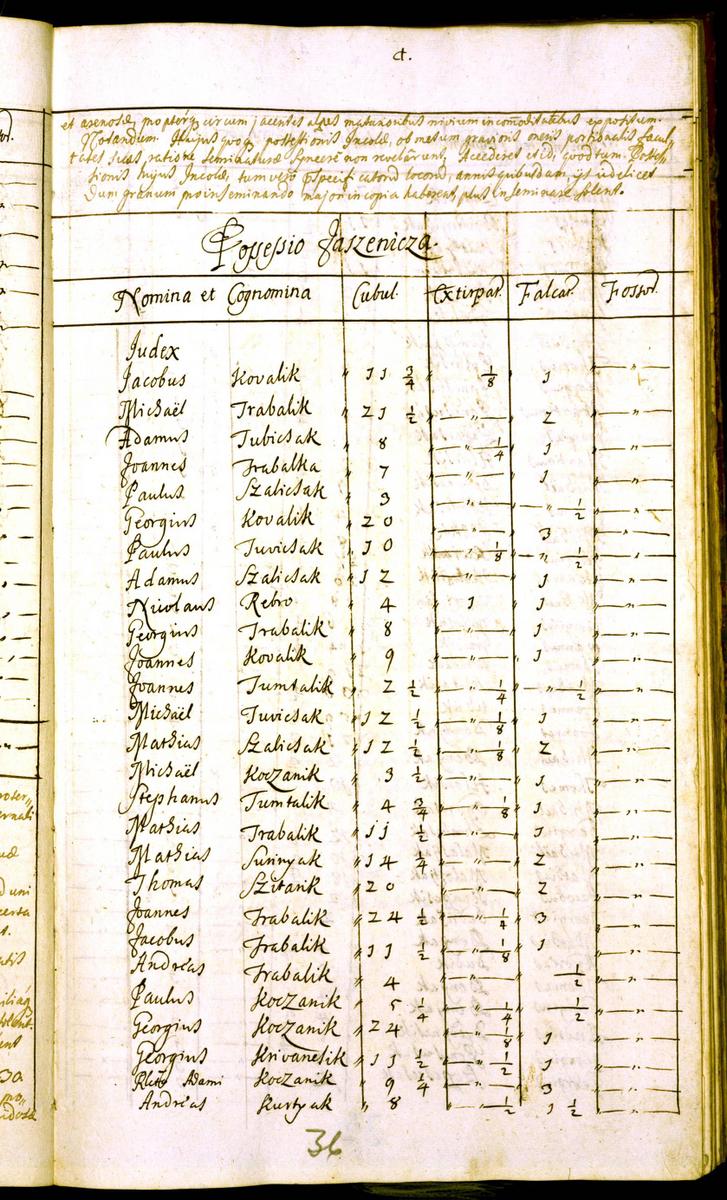 et arenosæ, propterq circum jacentes alpes maturioribus nivium incomoditatibus expositum.
Notandum. Hujus quoq possessionis Incolæ, ob metum gravioris oneris portionalis facul-
tates suas ratione seminaturæ sincere non revelarunt, Accederet etiā, quod tum Posses-
sionis hujus Incolæ, tum vero
dum granum proinseminando major in copia habeant, plus inseminare solent.
Possessio Jaszenicza.
Nomina et Cognomina Cubul. Extirpat. Falcat. Fossor.
Iudex
Jacobus Kovalik " 11 3/4 " 1/8 1 " — " —
Michaël Trabalik " 21 1/2 " — " — " 2 " — " —
Adamus Tubicsak " 8 " — " 1/4 1 " — " —
Joannes Trabalka " 7 " — " — 1 " — " —
Paulus Szalicsak " 3 " — " — — " 1/2 " — " —
Georgius Kovalik " 20 " — " — 3 " — " —
Paulus Tuvicsak " 10 " — " 1/8 — " 1/2 " — " —
Adamus Szalicsak " 12 " — " — 1 " — " —
Nicolaus Rebro " 4 " 1 1 " — " —
Georgius Trabalik " 8 " — " — 1 " — " —
Joannes Kovalik " 9 " — " — 1 " — " —
Joannes Tumtalik " 2 1/2 " — " 1/4 — " 1/2 " — " —
Michaël Tuvicsak " 12 1/2 " — " 1/8 1 " — " —
Mathias Szalicsak " 12 1/2 " — " 1/8 2 " — " —
Michaël Koczanik " 3 1/2 " — " — 1 " — " —
Stephanus Tumtalik " 4 3/4 " — " 1/8 1 " — " —
Mathias Trabalik " 11 1/2 " — " — 1 " — " —
Mathias Surinyak " 14 1/4 " — " — 2 " — " —
Thomas Szitarik " 20 " — " — 2 " — " —
Joannes Trabalik " 24 1/2 " — " 1/4 3 " — " —
Jacobus Trabalik " 11 1/2 " — " 1/8 1 " — " —
Andreas Trabalik " 4 " — " — 1/2 " — " —
Paulus Koczanik " 5 1/4 " — " 1/4 1/2 " — " —
Georgius Koczanik " 24 " — " 1/8 1 " — " —
Georgius Krivanelik " 11 1/2 " — " 1/2 1 " — " —
Adami Koczanik " 9 1/4 " — " — 3 " — " —
Andreas Kurtyak " 8 " — " 1/2 1 1/2 " — " —
36